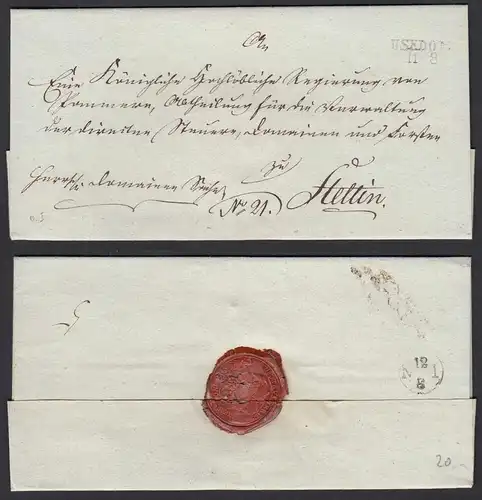 An
USEDOM
11 8
Eine Königliche Hochlöbliche Regierung von
Pommern, Abtheilung für die Verwaltung
der directen Steuern, Domainen und Forsten
zu
Herrschl. Domainen Sache
No 21.
Stettin.
12
8
N 1
20